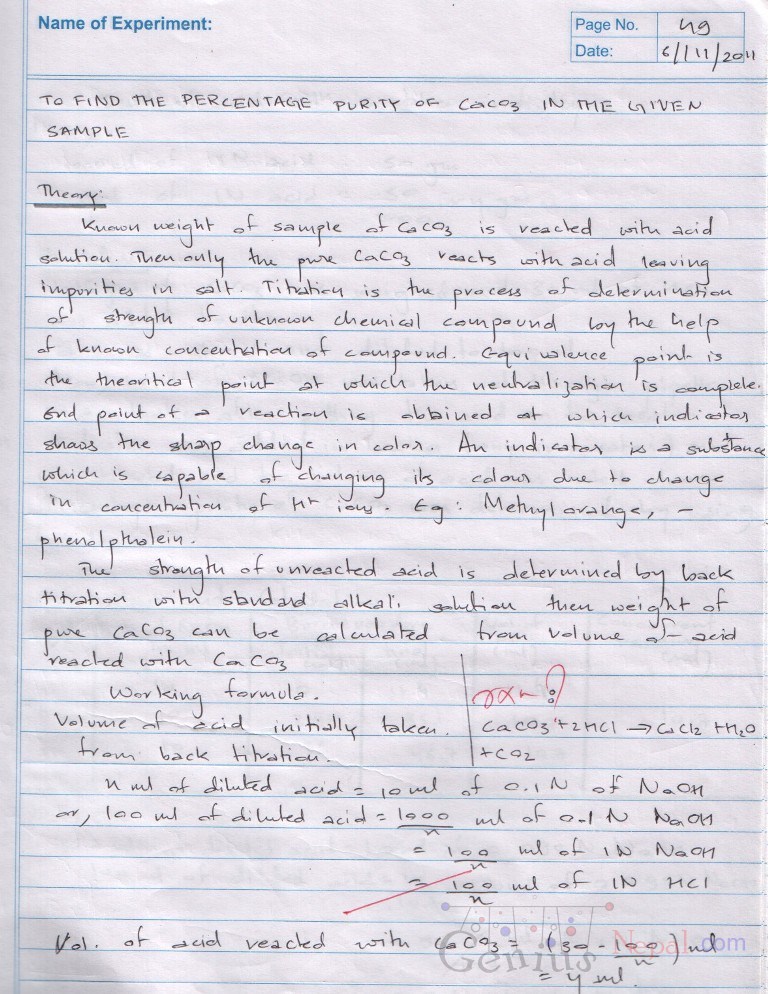 Name of Experiment:
Page No. 49
Date: 6/11/2011
TO FIND THE PERCENTAGE PURITY OF CaCO3 IN THE GIVEN
SAMPLE
Theory:
Known weight of sample of CaCO3 is reacted with acid
solution. Then only the pure CaCO3 reacts with acid leaving
impurities in salt. Titration is the process of determination
of strength of unknown chemical compound by the help
of known concentration of compound. Equivalence point is
the theoritical point at which the neutralization is complete.
End point of a reaction is obtained at which indicator
shows the sharp change in color. An indicator is a substance
which is capable of changing its colour due to change
in concentration of H+ ions. Eg: Methyl orange, -
phenolptholein.
The strength of unreacted acid is determined by back
titration with standard alkali solution then weight of
pure CaCO3 can be calculated from volume of acid
reacted with CaCO3
Working formula.
rxn?
Volume of acid initially taken. CaCO3+2HCl → CaCl2 +H2O
from back titration. +CO2
n ml of diluted acid = 10 ml of 0.1 N of NaOH
or, 100 ml of diluted acid = 1000/n ml of 0.1 N NaOH
= 100/n ml of 1N NaOH
= 100/n ml of 1N HCl
Vol. of acid reacted with CaCO3 = (30 - 100/n) ml
= y ml.
Genius Nepal.com